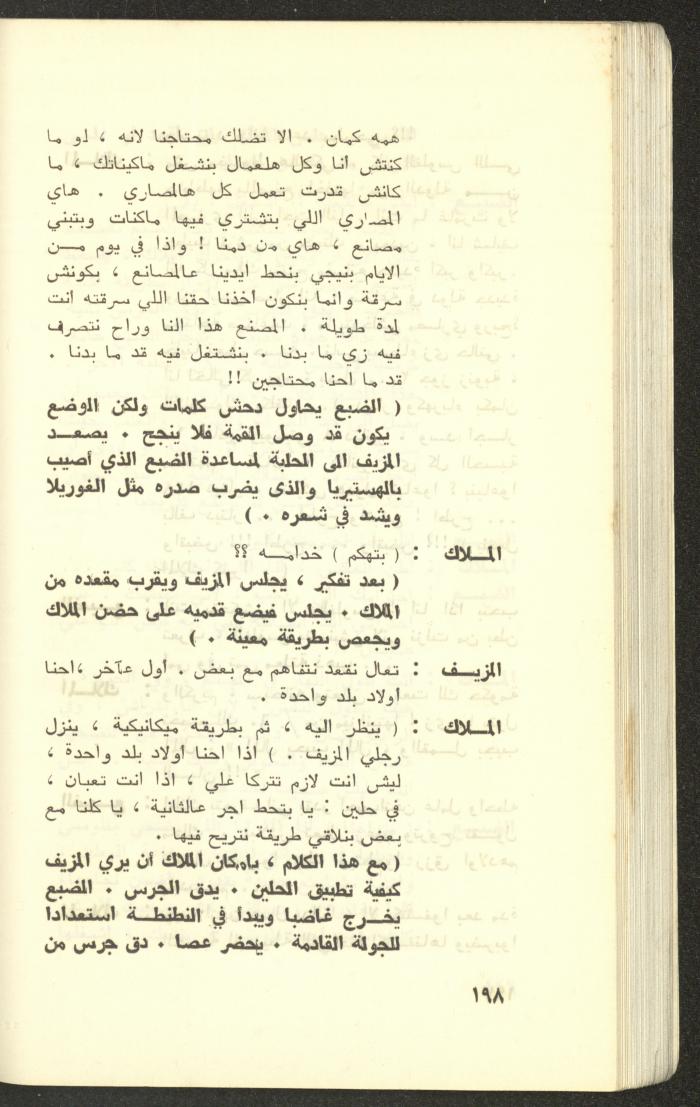 همه كمان . الا تضلك محتاجنا لانه ، لو ما
كنتش انا وكل هلعمال بنشغل ماكيناتك ، ما
كانش قدرت تعمل كل هالمصاري . هاي
المصاري اللي بتشتري فيها ماكنات وبتبني
مصانع ، هاي من دمنا ! واذا في يوم مــن
الايام بنيجي بنحط ايدينا عالمصانع ، بكونش
سرقة وانما بنكون أخذنا حقنا اللي سرقته انت
لمدة طويلة . المصنع هذا النا وراح نتصرف
فيه زي ما بدنا . بنشتغل فيه قد ما بدنا .
قد ما احنا محتاجين !!
( الضبع يحاول دحش كلمات ولكن الوضع
يكون قد وصل القمة فلا ينجح . يصعــد
المزيف الى الحلبة لمساعدة الضبع الذي أصيب
بالهستيريا والذى يضرب صدره مثل الغوريلا
ويشد في شعره . )
المــلاك : ( بتهكم ) خدامــه ؟؟
( بعد تفكير ، يجلس المزيف ويقرب مقعده من
الملاك . يجلس فيضع قدميه على حضن الملاك
ويجعص بطريقة معينة . )
المزيــف : تعال نقعد نتفاهم مع بعض . أول عآخر ،احنا
أولاد بلد واحدة .
المــلاك : ( ينظر اليه ، ثم بطريقة ميكانيكية ، ينزل
رجلي المزيف . ) اذا احنا أولاد بلد واحدة ،
ليش انت لازم تتركا علي ، اذا انت تعبان ،
في حلين : يا بتحط اجر عالثانية ، يا كلنا مع
بعض بنلاقي طريقة نتريح فيها .
( مع هذا الكلام ، بامكان الملاك أن يري المزيف
كيفية تطبيق الحلين . يدق الجرس . الضبع
يخــرج غاضبا ويبدأ في النطنطــة استعدادا
للجولة القادمة . يحضر عصا . دق جرس من
١٩٨